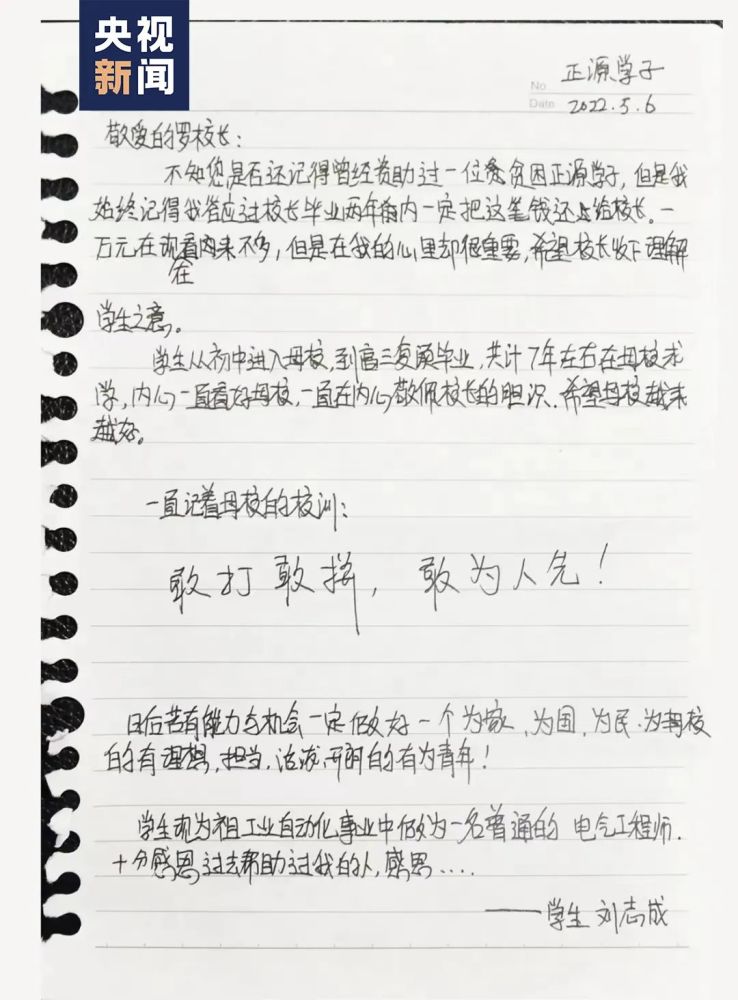 央视
新闻
No 正源学子
Date 2022.5.6
敬爱的罗校长：
不知您是否还记得曾经资助过一位贫困正源学子，但是我
始终记得我答应过校长毕业两年内一定把这笔钱还上给校长。一
万元在现看来不多，但是在我的心里却很重要，希望校长收下理解
在
学生之意。
学生从初中进入母校，到高三复读毕业，共计7年左右在母校求
学，内心一直看好母校，一直在内心敬佩校长的胆识、希望母校越来
越好。
一直记着母校的校训：
敢打敢拼，敢为人先！
日后若有能力与机会一定做好一个为家、为国，为民.为母校
的有理想，担当，活泼开朗的有为青年！
学生现为祖工业自动化事业中做为一名普通的 电气工程师.
十分感恩过去帮助过我的人，感恩....
——学生 刘志成